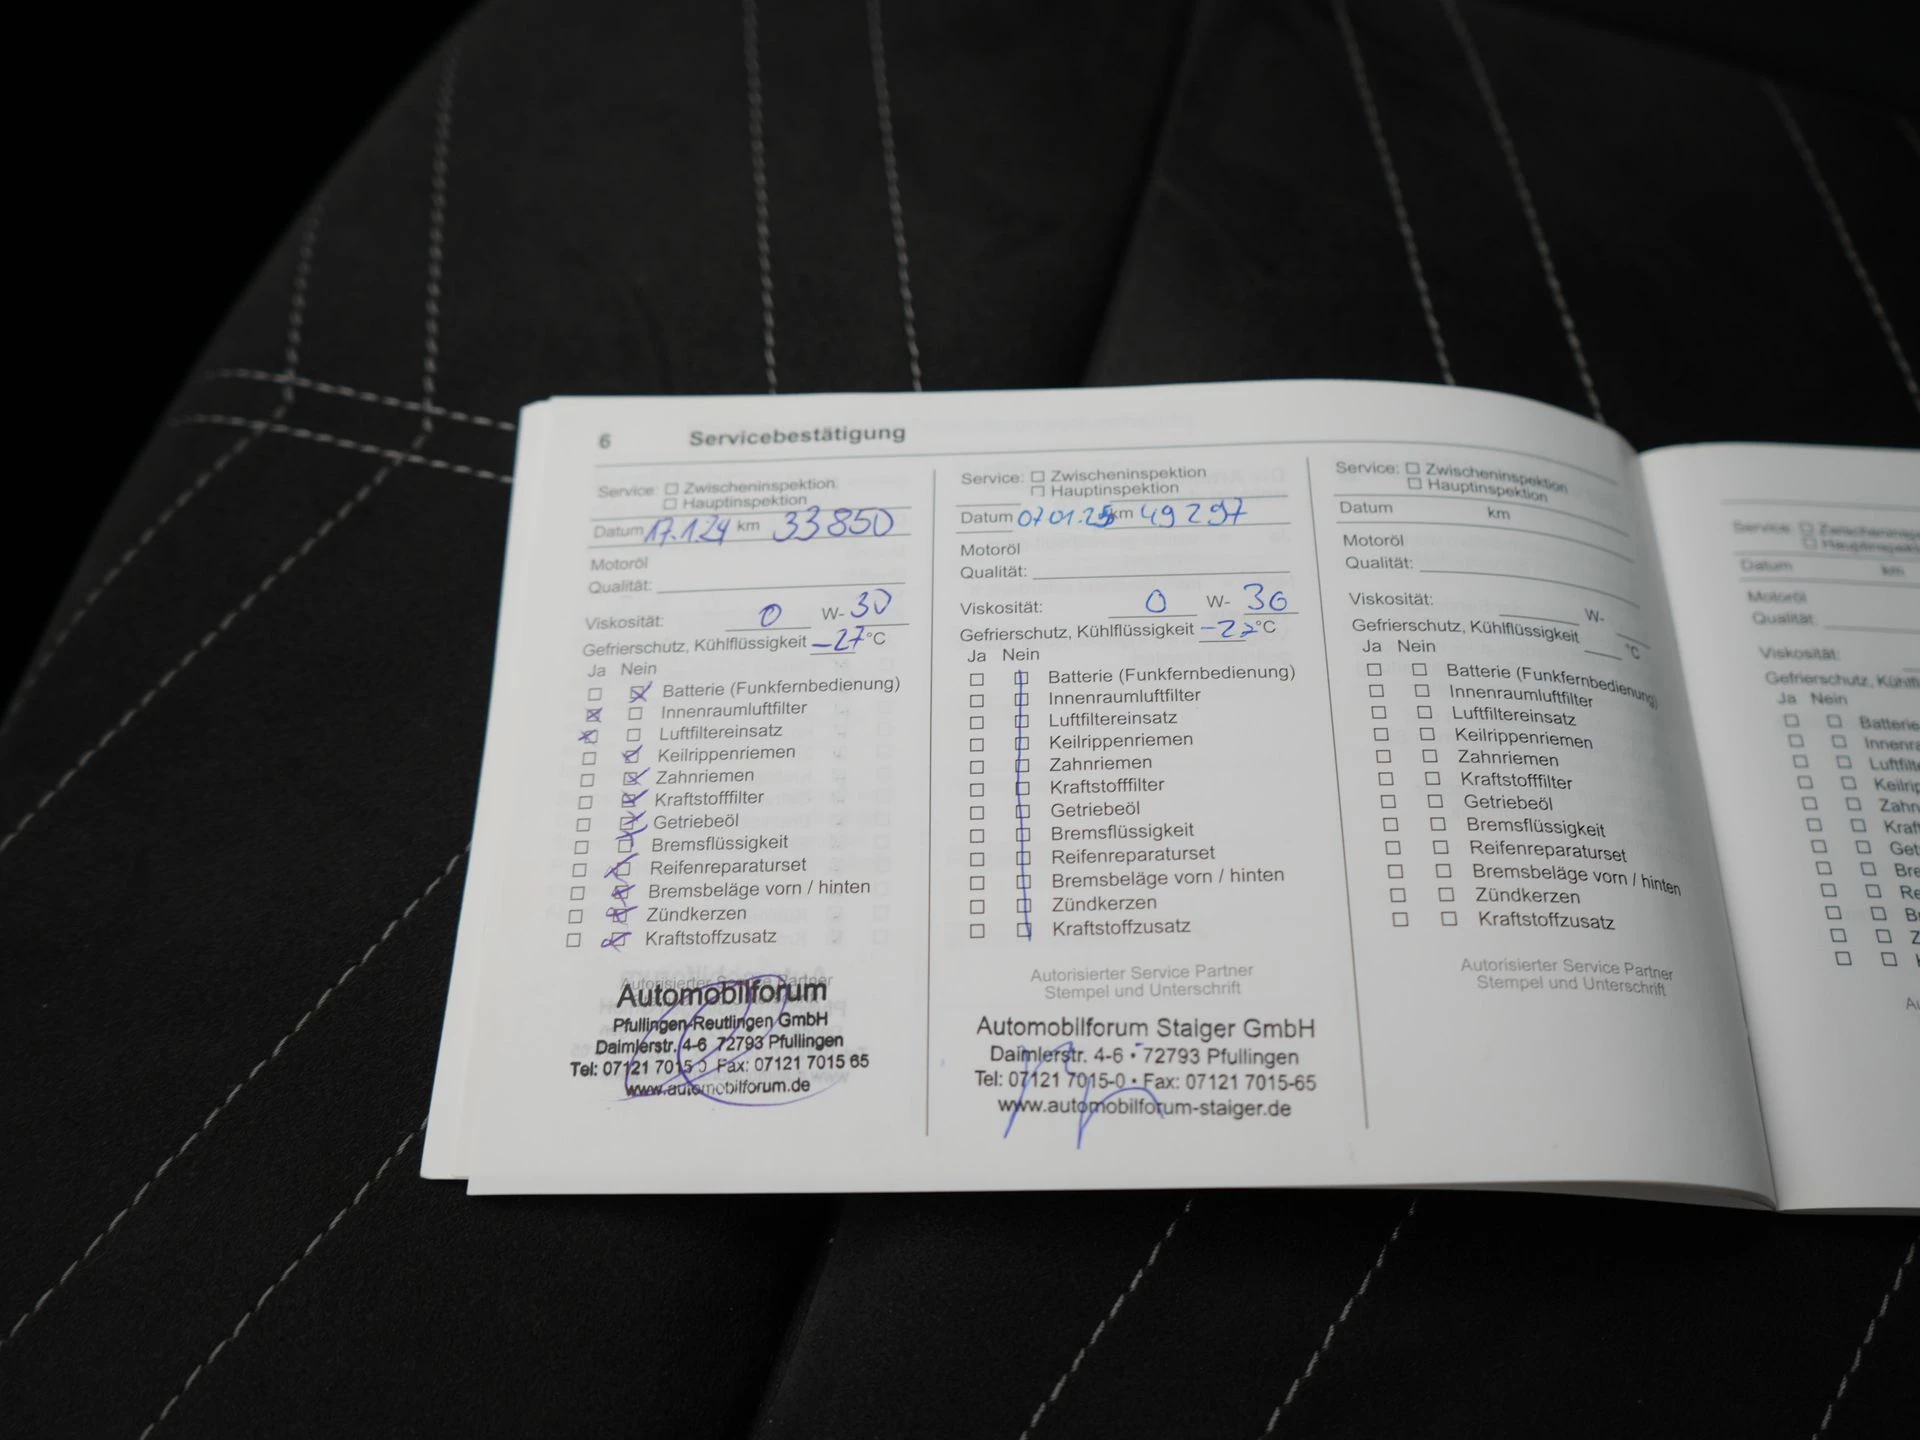 6 Servicebestätigung
Service: Zwischeninspektion
Hauptinspektion
Datum 17.1.24 km 33850
Motoröl
Qualität:
Viskosität: 0 W- 30
Gefrierschutz, Kühlflüssigkeit -27 °C
Ja Nein
Batterie (Funkfernbedienung)
Innenraumluftfilter
Luftfiltereinsatz
Keilrippenriemen
Zahnriemen
Kraftstofffilter
Getriebeöl
Bremsflüssigkeit
Reifenreparaturset
Bremsbeläge vorn / hinten
Zündkerzen
Kraftstoffzusatz
Autorisierter Service Partner
Automobilforum
Pfullingen-Reutlingen GmbH
Daimlerstr. 4-6 72793 Pfullingen
Tel: 07121 7015 0 Fax: 07121 7015 65
www.automobilforum.de
Service: Zwischeninspektion
Hauptinspektion
Datum 07.01.25 km 49297
Motoröl
Qualität:
Viskosität: 0 W- 30
Gefrierschutz, Kühlflüssigkeit -27 °C
Ja Nein
Batterie (Funkfernbedienung)
Innenraumluftfilter
Luftfiltereinsatz
Keilrippenriemen
Zahnriemen
Kraftstofffilter
Getriebeöl
Bremsflüssigkeit
Reifenreparaturset
Bremsbeläge vorn / hinten
Zündkerzen
Kraftstoffzusatz
Autorisierter Service Partner
Stempel und Unterschrift
Automobilforum Staiger GmbH
Daimlerstr. 4-6 • 72793 Pfullingen
Tel: 07121 7015-0 • Fax: 07121 7015-65
www.automobilforum-staiger.de
Service: Zwischeninspektion
Hauptinspektion
Datum km
Motoröl
Qualität:
Viskosität: W-
Gefrierschutz, Kühlflüssigkeit °C
Ja Nein
Batterie (Funkfernbedienung)
Innenraumluftfilter
Luftfiltereinsatz
Keilrippenriemen
Zahnriemen
Kraftstofffilter
Getriebeöl
Bremsflüssigkeit
Reifenreparaturset
Bremsbeläge vorn / hinten
Zündkerzen
Kraftstoffzusatz
Autorisierter Service Partner
Stempel und Unterschrift
Service:
Datum km
Motoröl
Qualität:
Viskosität:
Gefrierschutz,
Ja Nein
Batterie